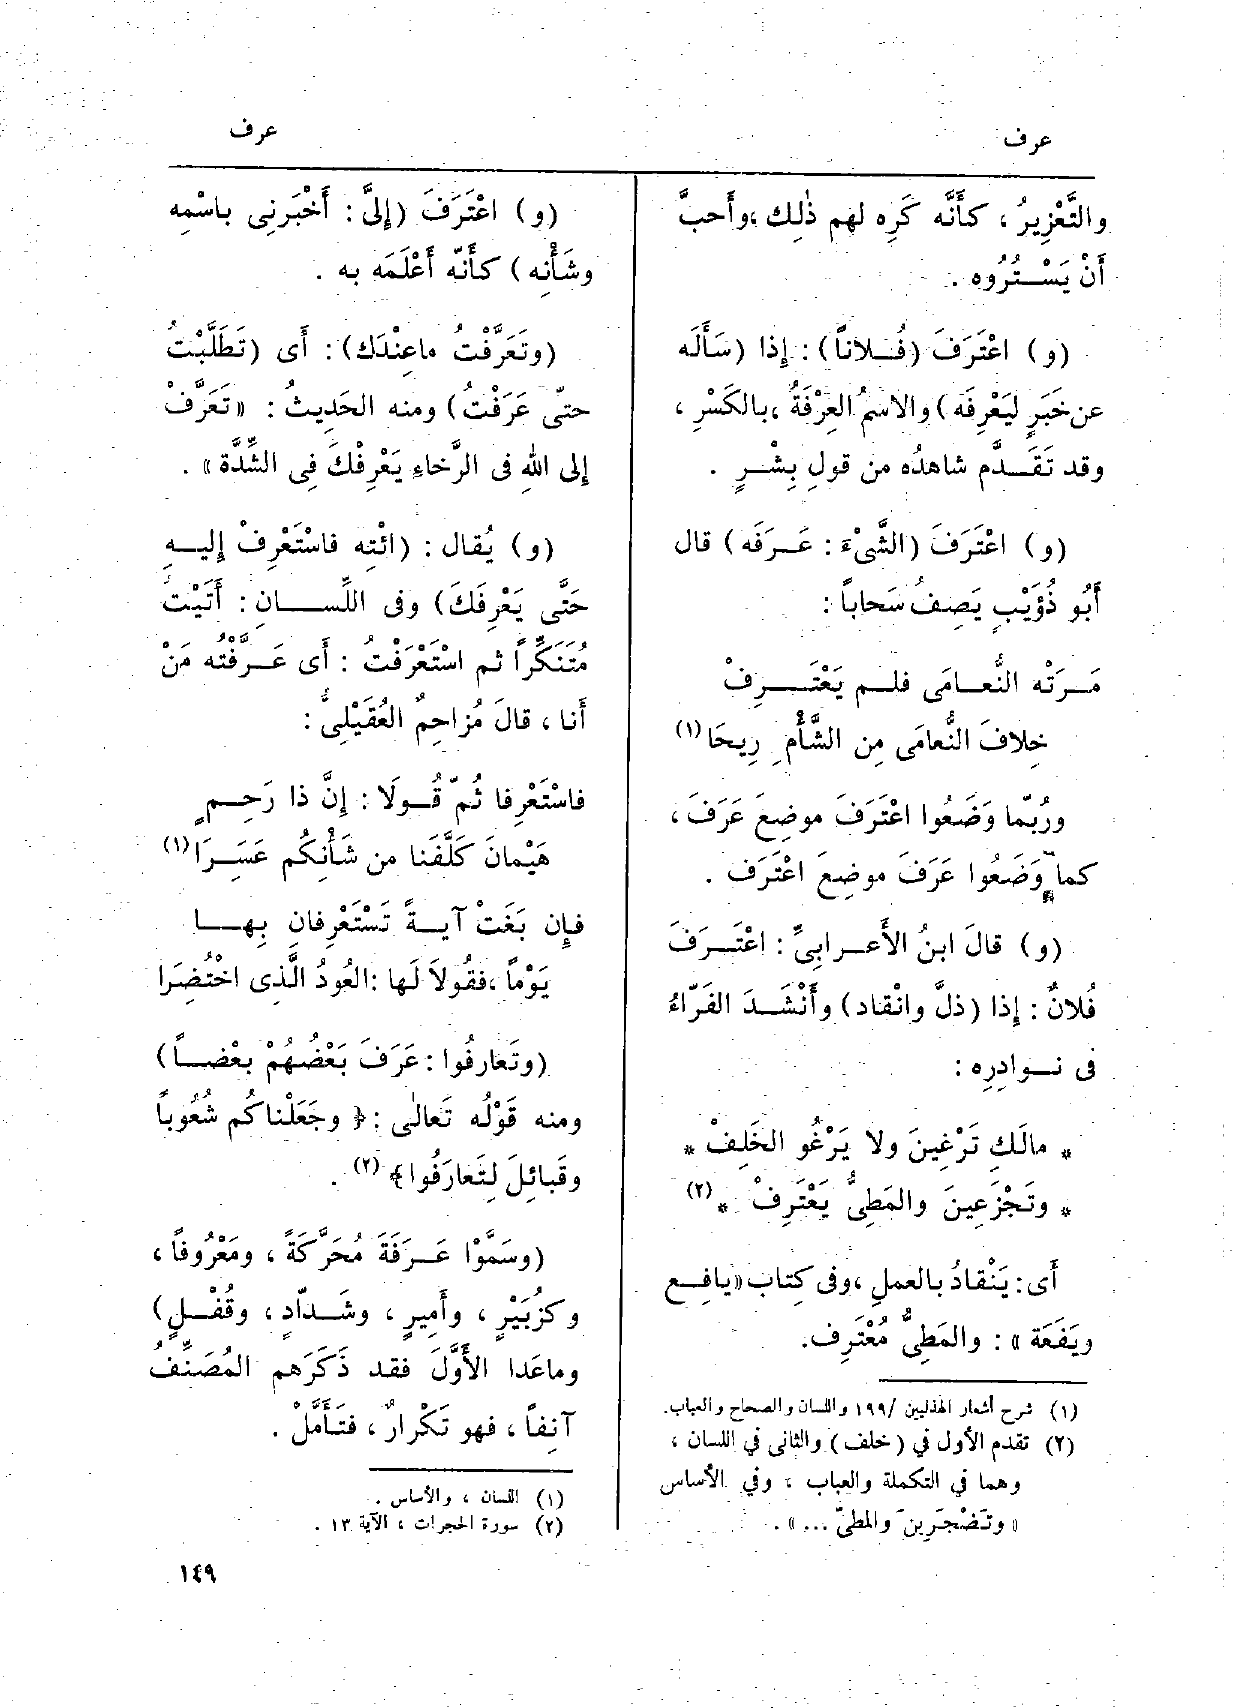 عرف
عرف
والتَّعْزِيرُ ، كأَنَّه كَرِه لهم ذٰلِك ،وأَحبَّ
أَنْ يَسْـتُرُوه .
(و) اعْتَرَفَ (فُـلاناً) : إِذا (سَأَلَه
عن خَبَرٍ لِيَعْرِفَه) والاسمُ العِرْفَةُ ،بالكَسْرِ ،
وقد تَقَـدَّم شاهدُه من قولِ بِشْـرٍ .
(و) اعْتَرَفَ (الشَّىْءَ : عَـرَفَه) قال
أَبُو ذُؤَيْبٍ يَصِفُ سَحاباً :
مَـرَتْه النُّعـامَى فلـم يَعْتَـــرِفْ
خِلافَ النُّعامَى مِن الشَّأْمِ رِيحَا (١)
ورُبَّما وَضَعُوا اعْتَرَفَ موضِعَ عَرَفَ ،
كما وَضَعُوا عَرَفَ موضِعَ اعْتَرَف .
(و) قالَ ابنُ الأَعـرابِىِّ : اعْتَـرَفَ
فُلانٌ : إِذا (ذلَّ وانْقاد) وأَنْشَـدَ الفَرّاءُ
فى نـوادِرِه :
* مالَكِ تَرْغِينَ ولا يَرْغُو الخَلِفْ *
* وتَجْزَعِينَ والمَطِىُّ يَعْتَرِفْ * (٢)
أَى : يَنْقادُ بالعملِ ،وفى كِتاب «يافِـع
ويَفَعَة » : والمَطِىُّ مُعْتَرِف.
(١) شرح أشعار الهذليين /١٩٩ واللسان والصحاح والعباب.
(٢) تقدم الأول في (خلف) والثانى في اللسان ،
وهما في التكملة والعباب ، وفي الأساس
« وتَضْجَرِينَ والمطىّ ... » .
(و) اعْتَرَفَ (إِلىَّ : أَخْبَرنِى باسْمِه
وشَأْنِه) كأَنّه أَعْلَمَه به .
(وتَعَرَّفْتُ ماعِنْدَك) : أَى (تَطَلَّبْتُ
حتّى عَرَفْتُ) ومنه الحَدِيثُ : «تَعَرَّفْ
إلى اللهِ فى الرَّخاءِ يَعْرِفْكَ فِى الشِّدَّة » .
(و) يُقال : (ائْتِه فاسْتَعْرِفْ إِليـهِ
حَتَّى يَعْرِفَكَ) وفى اللِّســانِ : أَتَيْتُ
مُتَنَكِّراً ثم اسْتَعْرَفْتُ : أَى عَـرَّفْتُه مَنْ
أَنا ، قالَ مُزاحِمٌ العُقَيْلِىُّ :
فاسْتَعْرِفا ثُمَّ قُـولَا : إِنَّ ذا رَحِـمٍ
هَيْمانَ كَلَّفَنا من شَأْنِكُم عَسَِـرَا (١)
فإِن بَغَتْ آيـةً تَسْتَعْرِفانِ بِهـا
يَوْماً ،فقُولاَ لَها :العُودُ الَّذِى اخْتُضِرَا
(وتَعارفُوا :عَرَفَ بَعْضُهُمْ بعْضـاً)
ومنه قَوْلُه تَعالٰى :﴿ وجَعَلْناكُم شُعُوباً
وقَبائِلَ لِتَعارَفُوا﴾ (٢) .
(وسَمَّوْا عَـرَفَةَ مُحَرَّكَةً ، ومَعْرُوفاً ،
وكزُبَيْرٍ ، وأَمِيرٍ ، وشَـدّادٍ ، وقُفْـلٍ)
وماعَدا الأَوَّلَ فقد ذَكَرَهم المُصَنِّفُ
آنِفاً ، فهو تَكْرارٌ ، فتَأَمَّلْ .
(١) اللسان ، والأساس .
(٢) سورة الحجرات ، الآية ١٣ .
١٤٩